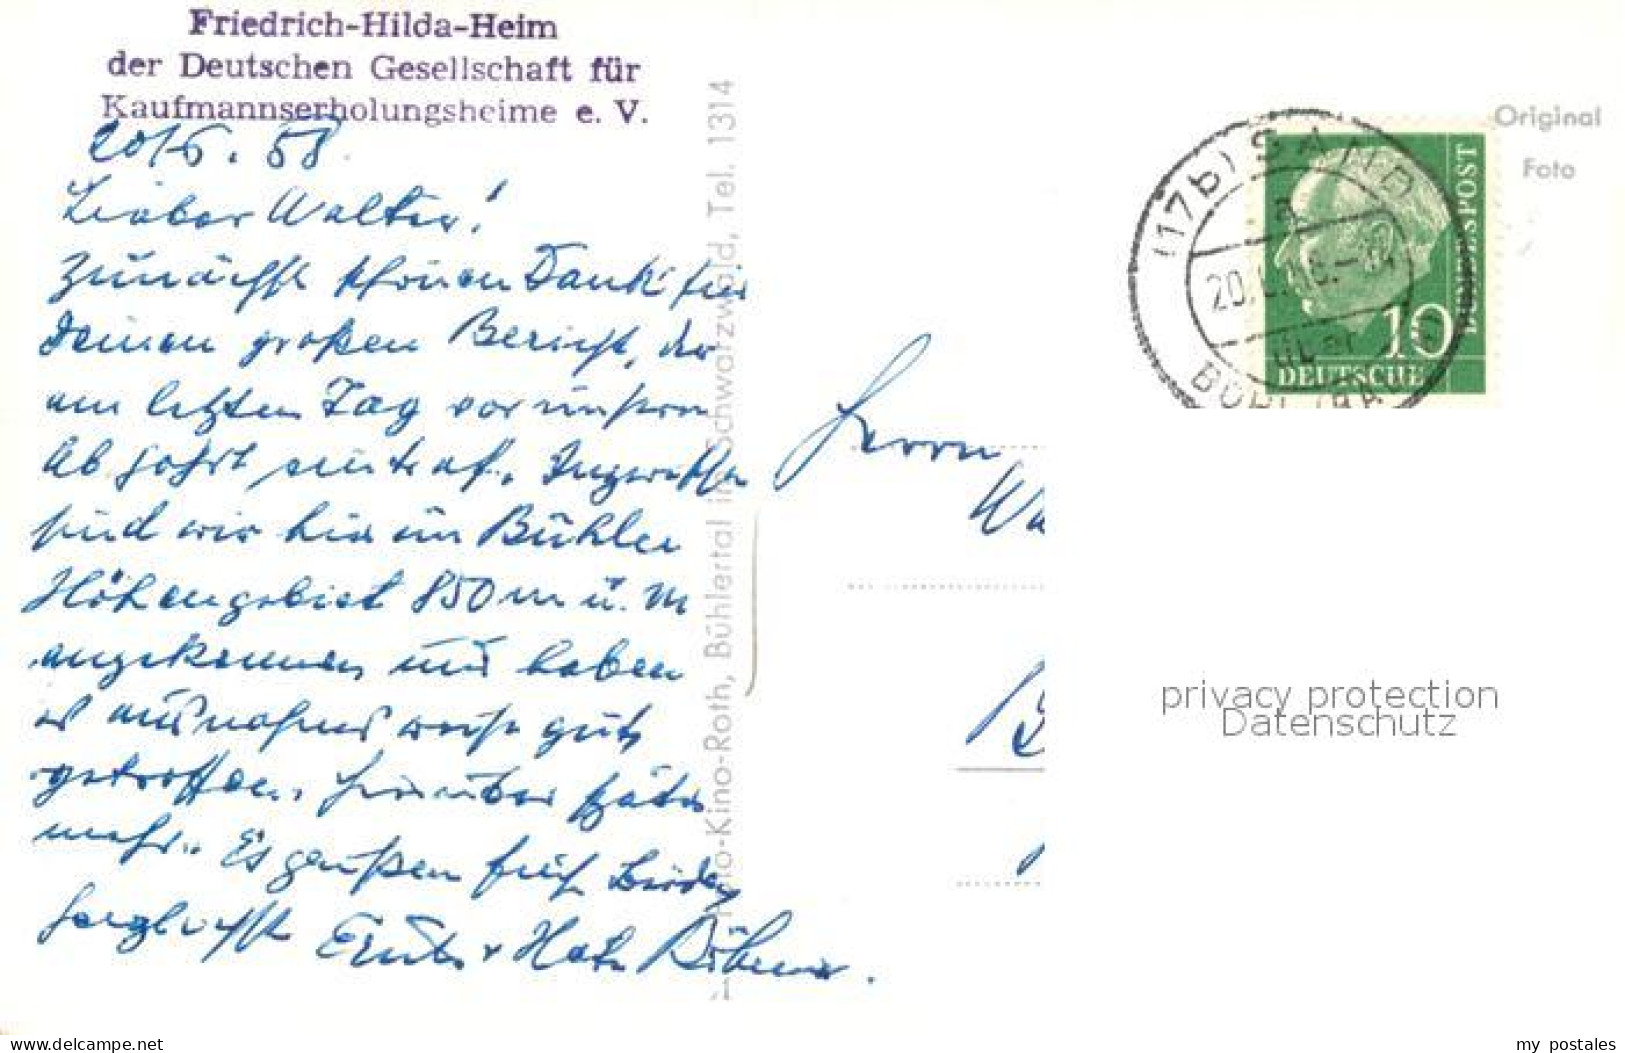 Friedrich-Hilda-Heim
der Deutschen Gesellschaft für
Kaufmannserholungsheime e. V.
20/6. 58.
Lieber Walter!
Zunächst schönen Dank für
Deinen großen Bericht, der
am letzten Tag vor unserer
Abfahrt eintraf. Inzwischen
sind wir hier im Bühler
Höhengebiet 850 m ü. M
angekommen und haben
es ausnahmsweise gut
getroffen. Hierüber später
mehr. Es grüßen Euch beide
herzlichst
Foto-Kino-Roth, Bühlertal im Schwarzwald, Tel. 1314
Original
Foto
(17b) SAND
a
20.
über
BÜHL (BADEN)
DEUTSCHE
BUNDESPOST
10
Herrn
Wa
privacy protection
Datenschutz
www.delcampe.net
my_postales